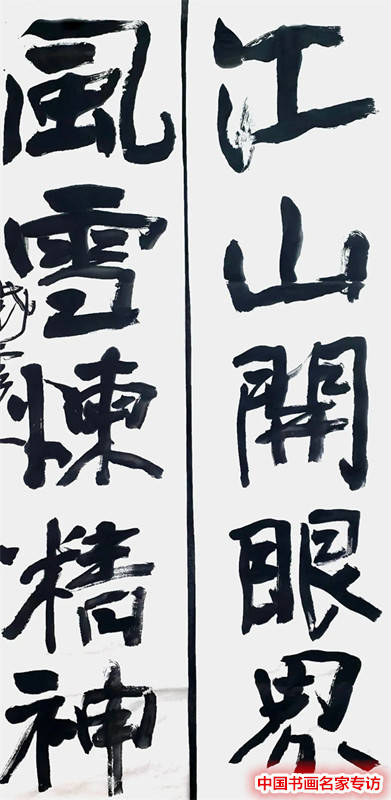 江山開眼界
風雪煉精神
中国书画名家专访